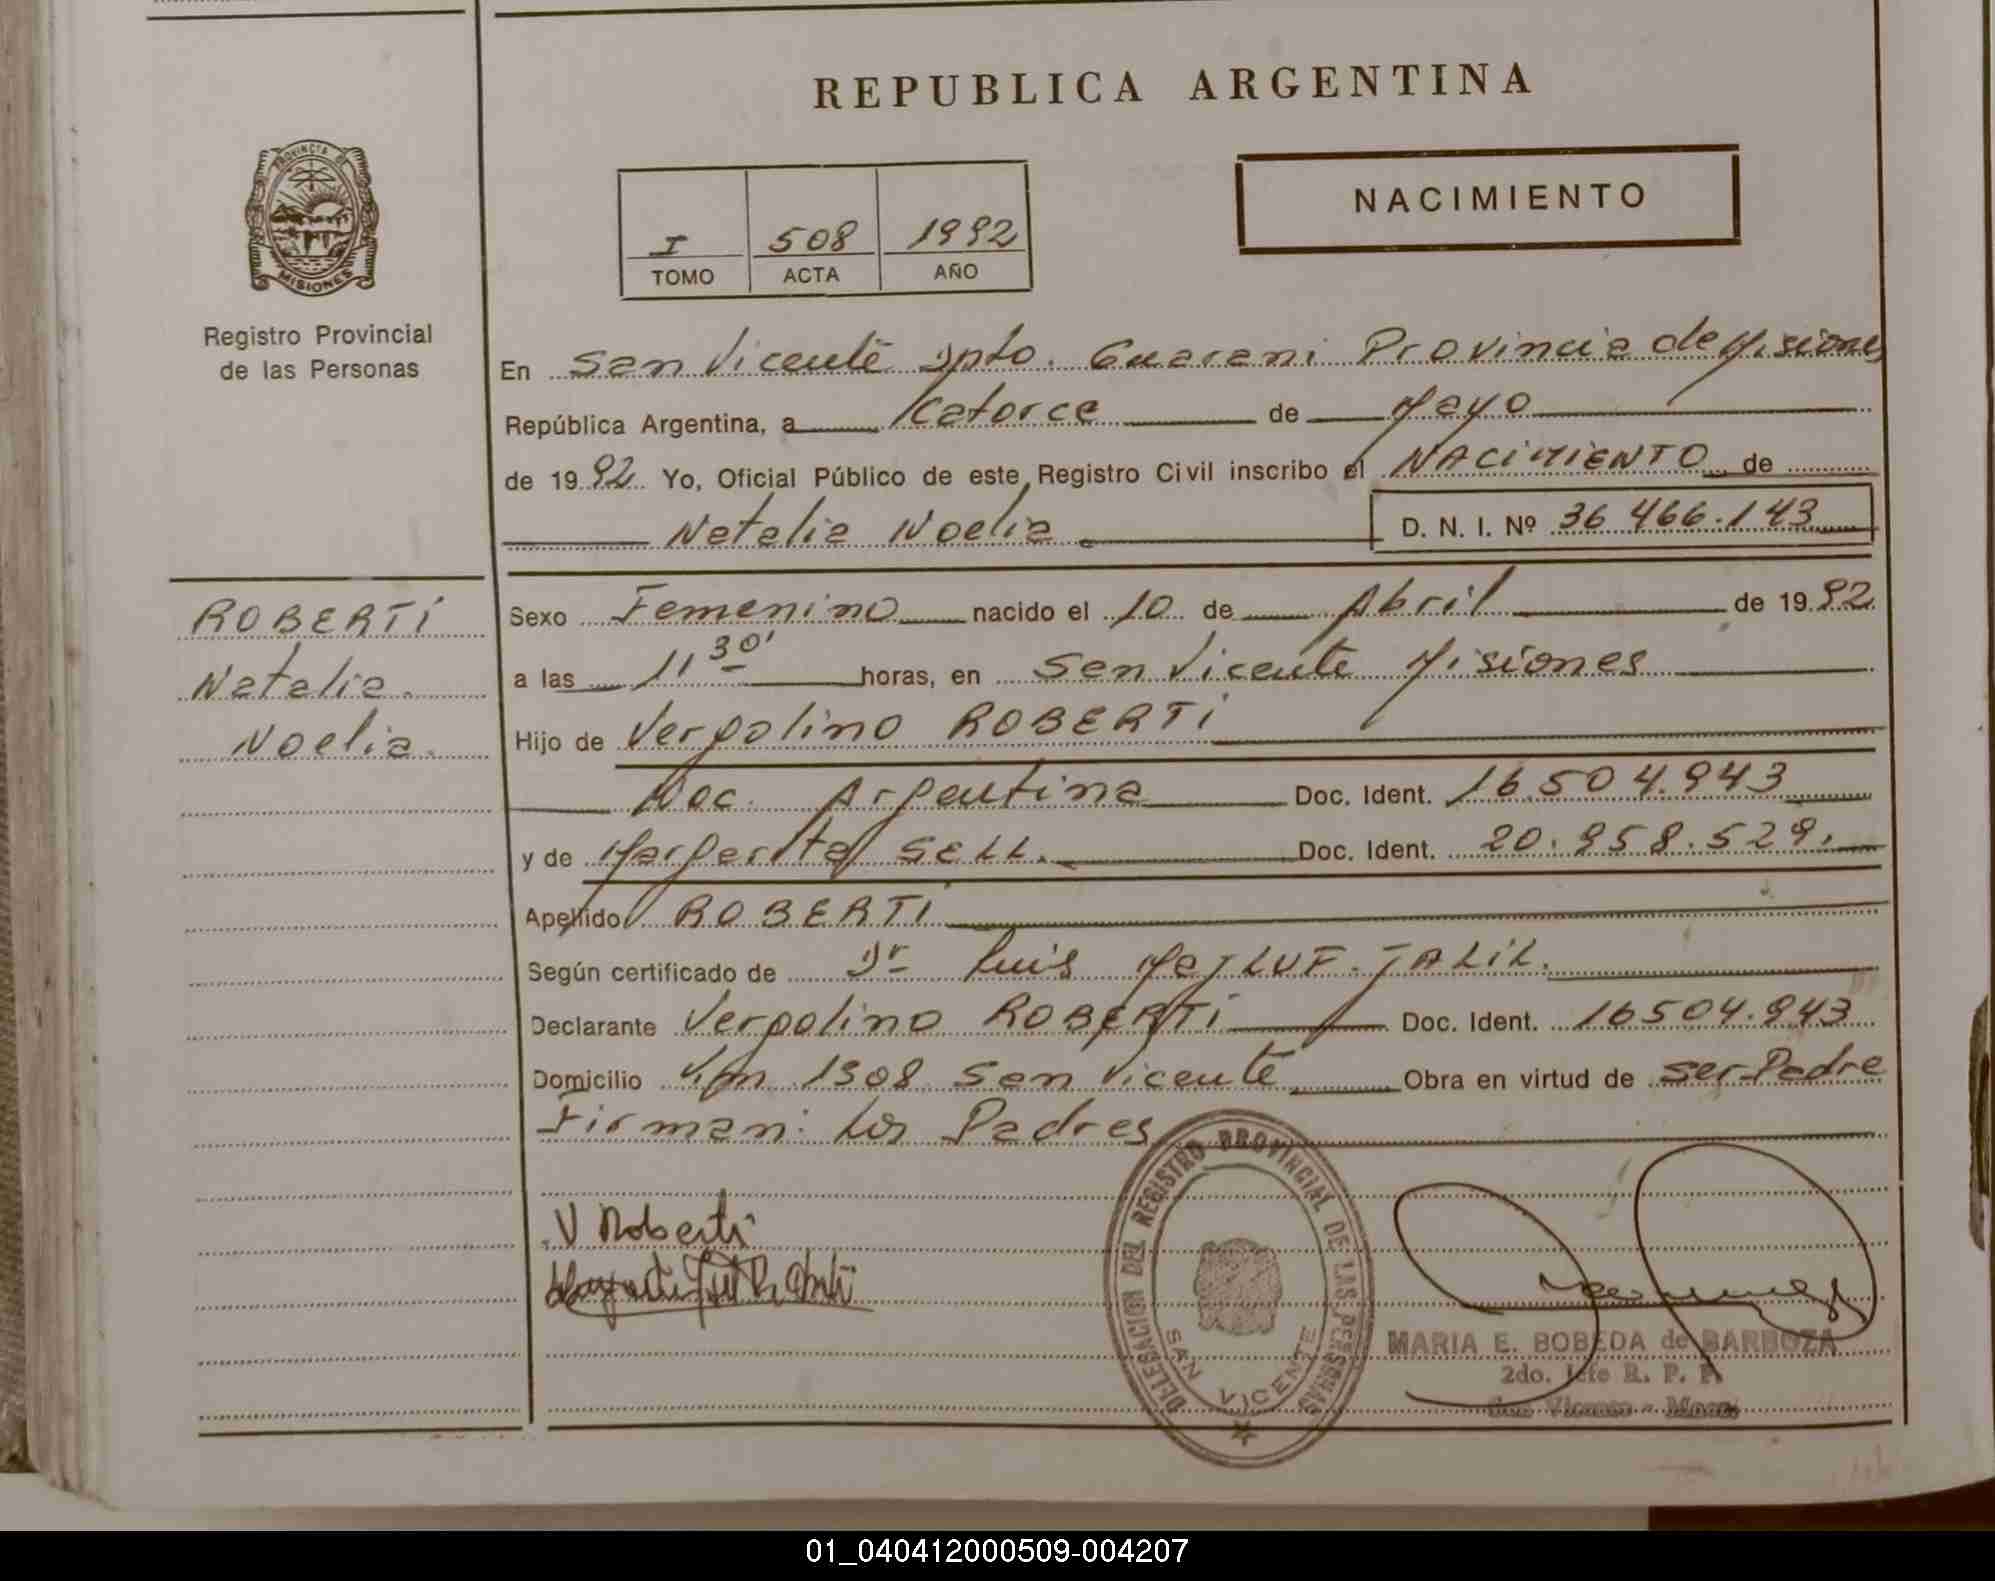 REPUBLICA ARGENTINA
PROVINCIA DE
MISIONES
Registro Provincial
de las Personas
NACIMIENTO
I 508 1992
TOMO ACTA AÑO
En San Vicente Dpto. Guarani Provincia de Misiones
República Argentina, a Catorce de Mayo
de 1992 Yo, Oficial Público de este Registro Civil inscribo el NACIMIENTO de
Natalia Noelia. D. N. I. Nº 36 466.143
ROBERTI
Natalia.
Noelia.
Sexo Femenino nacido el 10 de Abril de 1992
a las 11 30' horas, en San Vicente Misiones
Hijo de Vergolino ROBERTI
Nac. Argentina Doc. Ident. 16.504.943
y de Margarita SELL. Doc. Ident. 20.958.529.
Apellido ROBERTI
Según certificado de Dr Luis MAJLUF-JALIL.
Declarante Vergolino ROBERTI Doc. Ident. 16504.943
Domicilio Km 1308 San Vicente Obra en virtud de ser-Padre
Firman: Los Padres
V Roberti
DELEGACION DEL REGISTRO PROVINCIAL DE LAS PERSONAS
SAN VICENTE
MARIA E. BOBEDA de BARBOZA
2do. Jefe R. P. P.
San Vicente - Mnes.
01_040412000509-004207